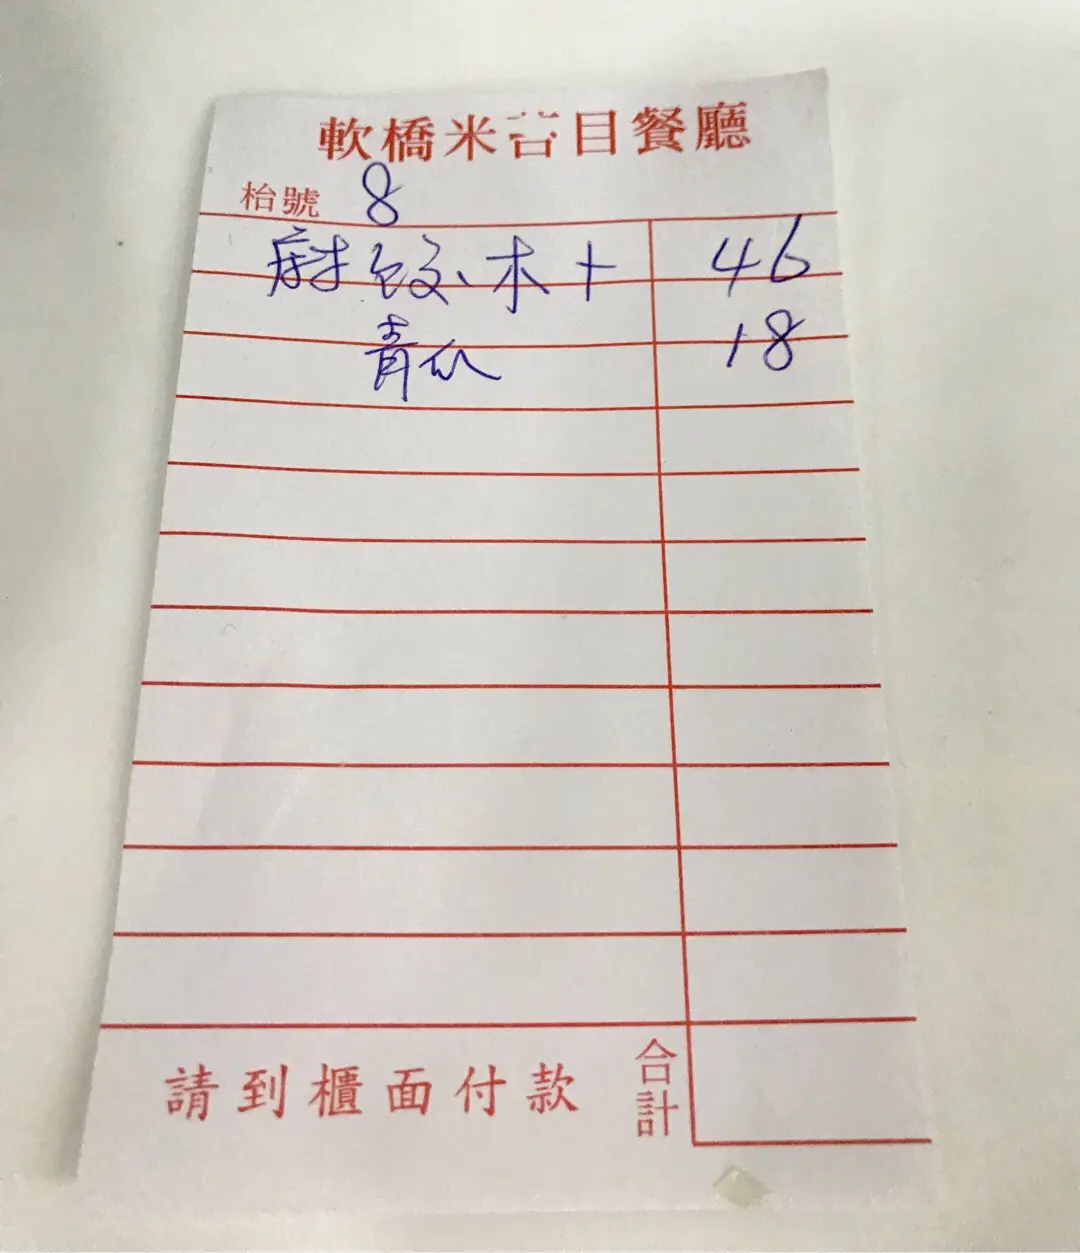 軟橋米苔目餐廳
枱號 8
麻饺、木十 46
青瓜 18
請到櫃面付款 合計